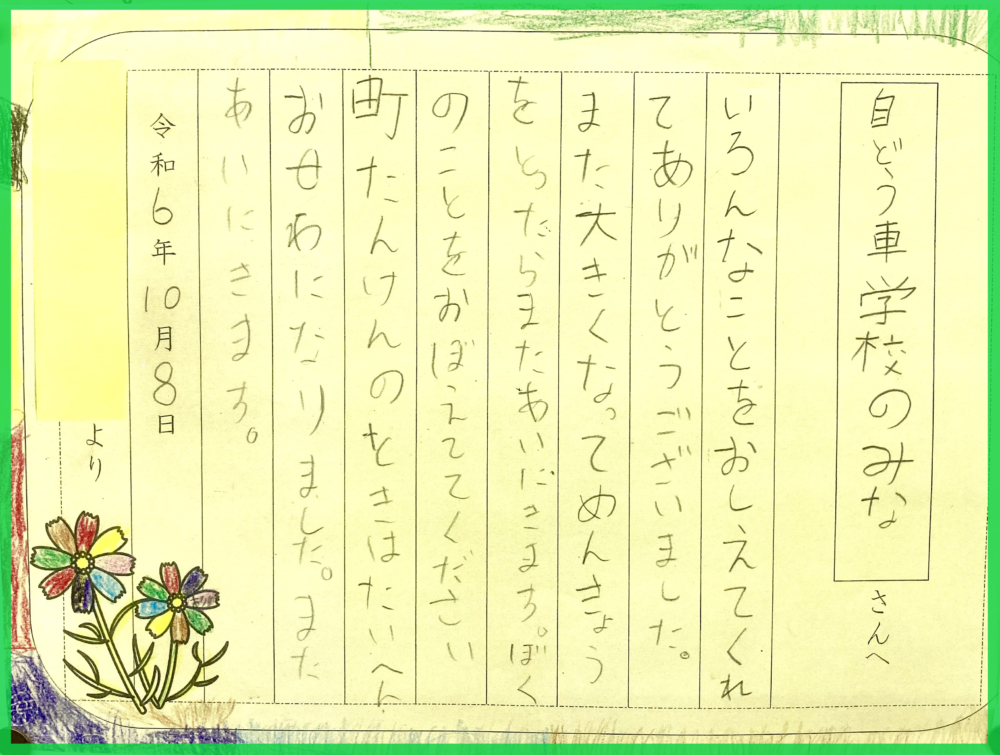 自どう車学校のみな さんへ
いろんなことをおしえてくれ
てありがとうございました。
また大きくなってめんきょう
をとったらまたあいにきます。ぼく
のことをおぼえててください
町たんけんのときはたいへん
おせわになりました。また
あいにきます。
令和6年10月8日
より